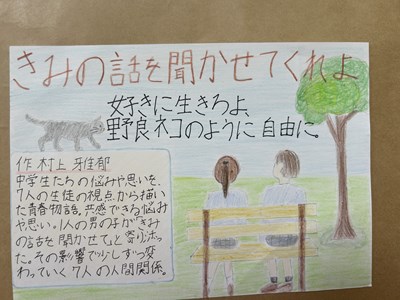 きみの話を聞かせてくれよ
好きに生きろよ、
野良ネコのように自由に。
作 村上 雅郁
中学生たちの悩みや思いを、
7人の生徒の視点から描い
た青春物語。共感できる悩み
や思い。1人の男の子が「きみ
の話を聞かせて」と
った。その影響で少しずつ変
わっていく7人の人間関係。